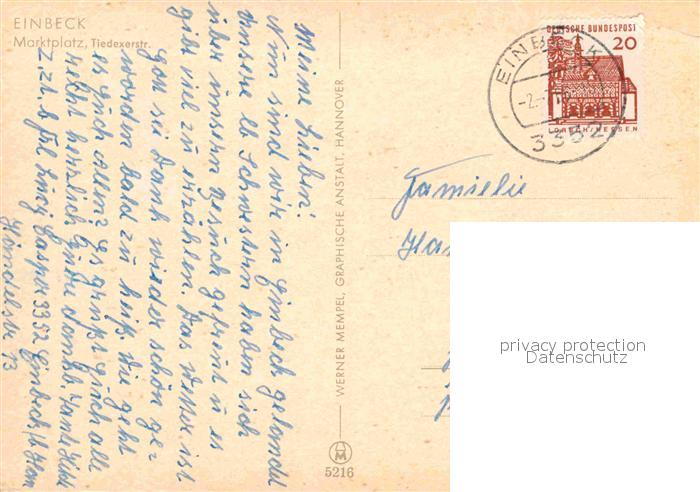 EINBECK
Marktplatz, Tiedexerstr.
Meine Lieben!
Nun sind wir in Einbeck gelandet
Unsere lb Schwestern haben sich
über unsern Besuch gefreut u es
gibt viel zu erzählen. Das Wetter ist
Gott sei Dank wieder schön ge
worden bald zu heiß. Wie geht
es Euch allen? Es grüßt Euch alle
recht herzlich Eure dankb. Tante
z.Zt. b Casper 3352 Einbeck
Händelstr 13
WERNER MEMPEL, GRAPHISCHE ANSTALT, HANNOVER
M
5216
DEUTSCHE BUNDESPOST
20
LORSCH/HESSEN
EINBECK
-2.-
3352
Familie
privacy protection
Datenschutz